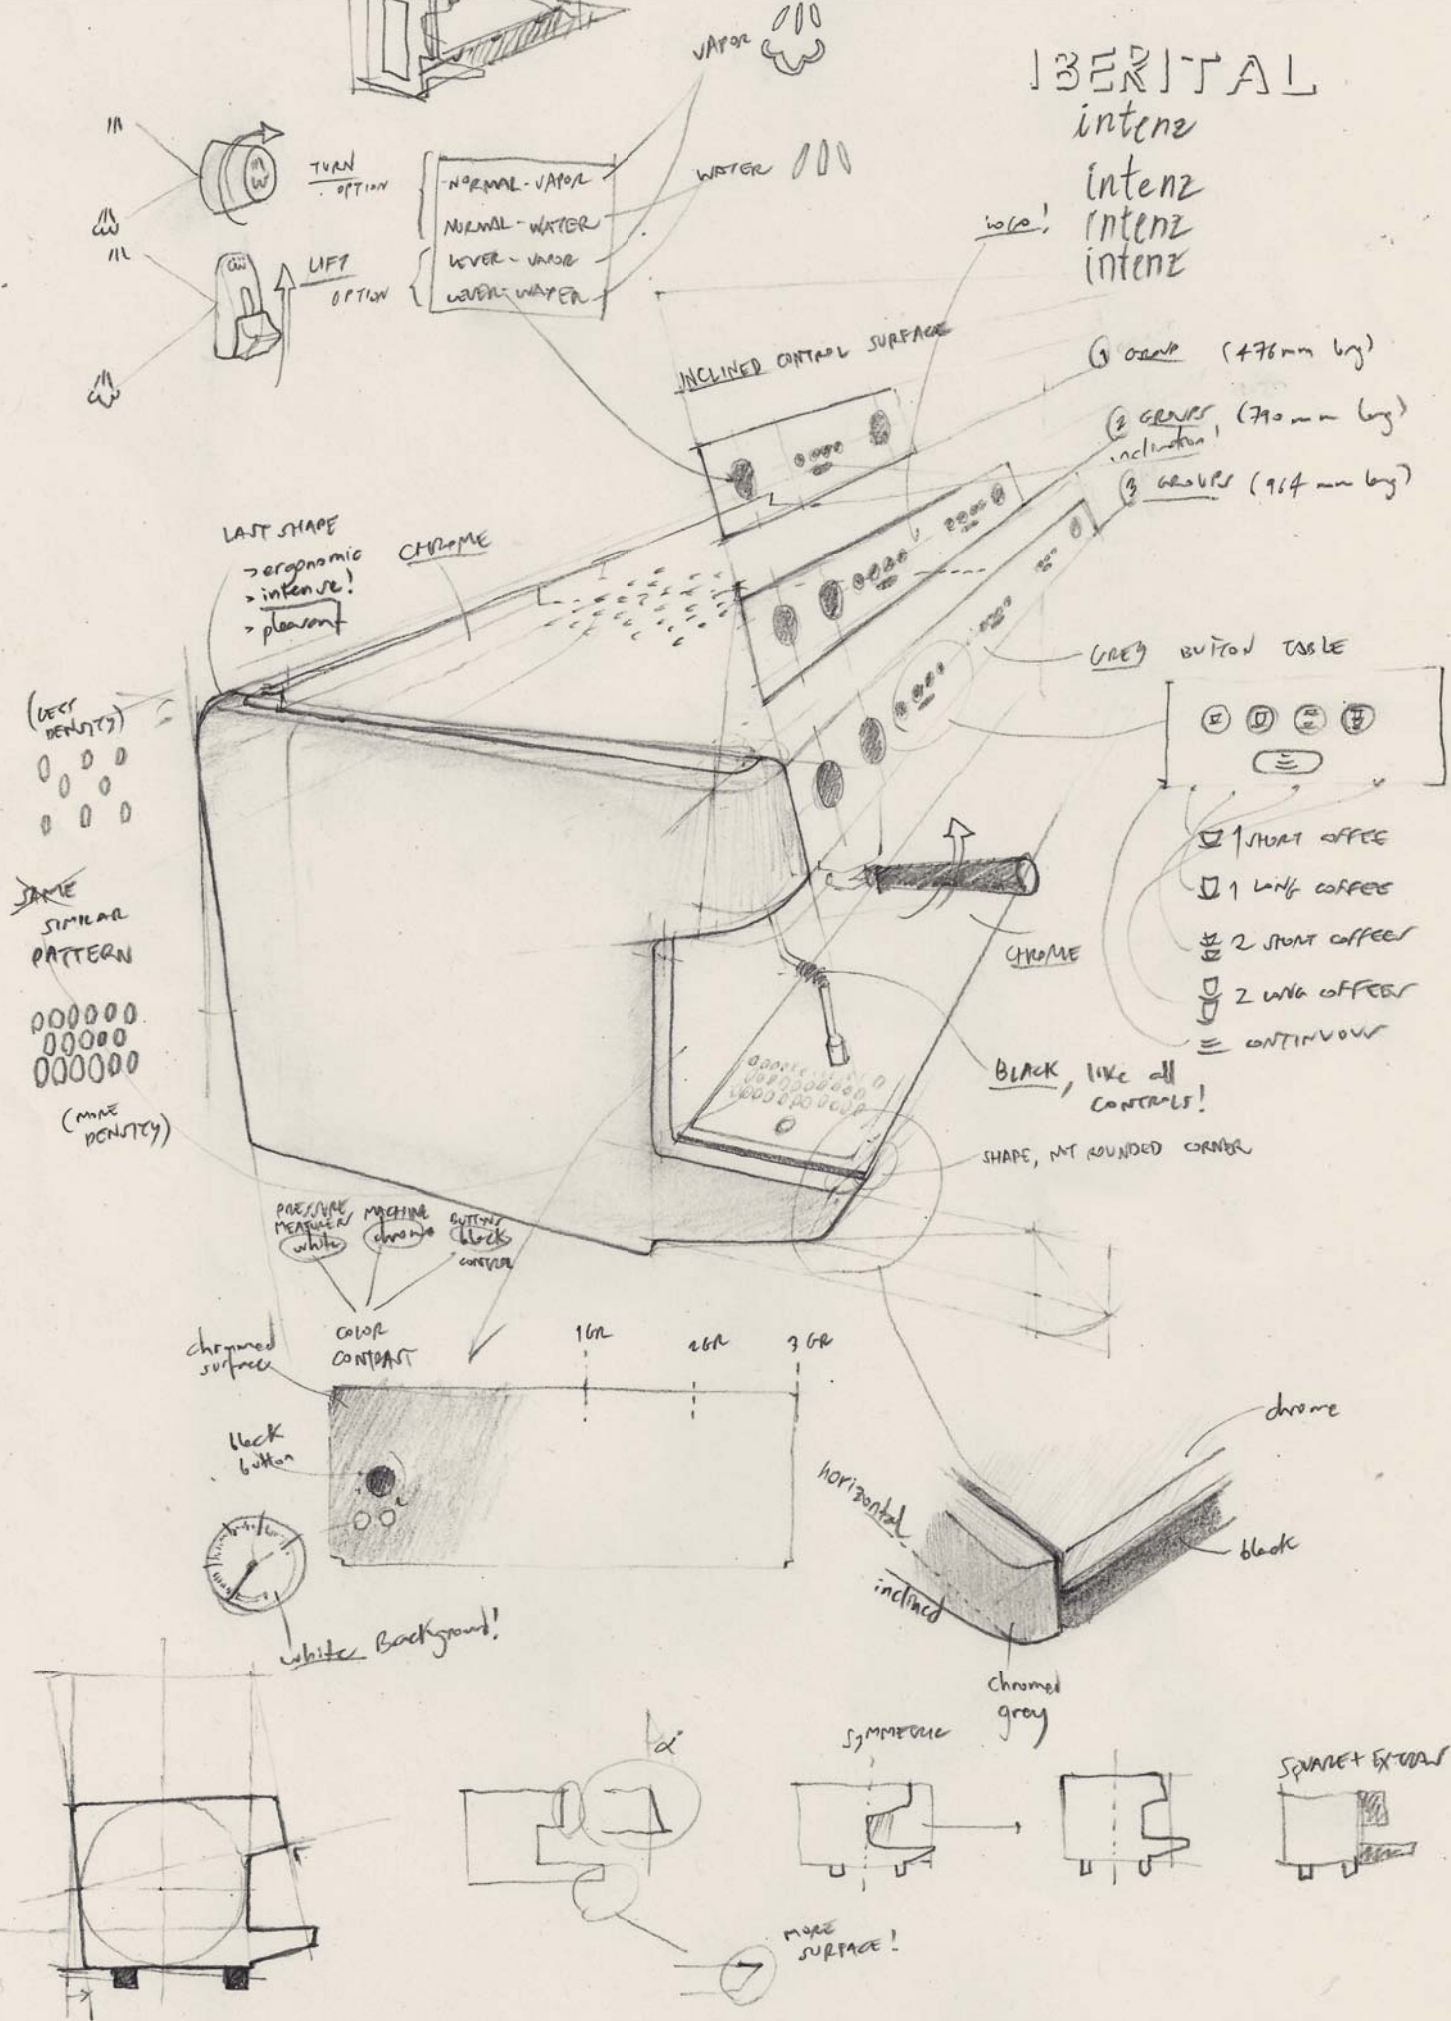 VAPOR
IBERITAL
intenz
intenz
intenz
intenz
logo!
TURN
OPTION
NORMAL-VAPOR
NORMAL-WATER
WATER
LIFT
OPTION
LEVER-VAPOR
LEVER-WATER
INCLINED CONTROL SURFACE
1 GROUP (476mm long)
2 GROUPS (790mm long)
inclination!
3 GROUPS (964mm long)
LAST SHAPE
> ergonomic
> intense!
> pleasant
CHROME
GREY BUTTON TABLE
(LESS
DENSITY)
SAME
SIMILAR
PATTERN
(MORE
DENSITY)
1 SHORT COFFEE
1 LONG COFFEE
2 SHORT COFFEES
2 LONG COFFEES
CONTINUOUS
CHROME
BLACK, like all
CONTROLS!
SHAPE, NOT ROUNDED CORNER
PRESSURE
MEASURERS
white
MACHINE
chrome
BUTTONS
black
CONTROL
COLOR
CONTRAST
chromed
surface
1GR
2GR
3GR
black
button
white Background!
horizontal
inclined
chrome
black
chromed
grey
α
SYMMETRIC
SQUARE + EXTRAS
MORE
SURFACE!